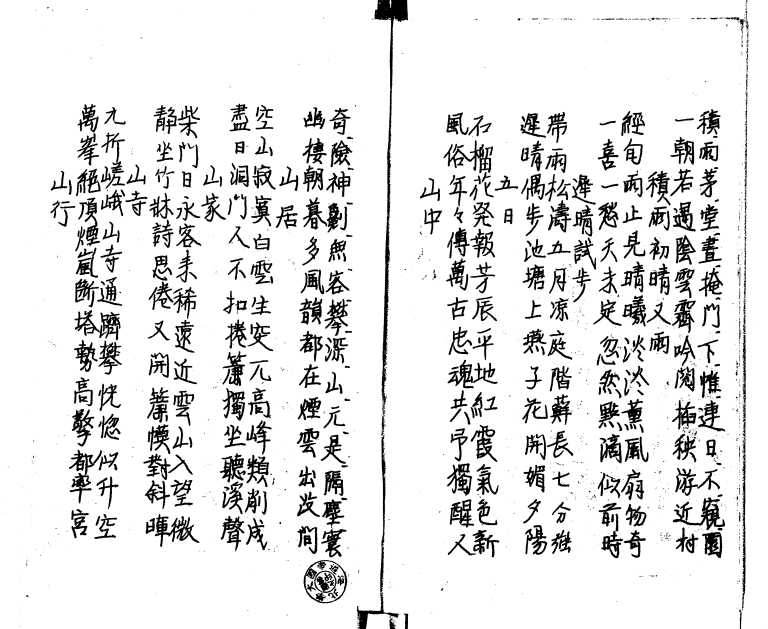 積雨茅堂晝掩門下惟連日不窺園
一朝若過陰雲霽吟閱插秧游近村
積雨初晴又雨
經旬雨止見晴曦淡淡薰風扇物奇
一喜一愁天未定忽然點滴似前時
遲晴試步
帶雨松濤五月凉庭階蘚長七分強
遲晴偶步池塘上燕子花開媚夕陽
五日
石榴花発報芳辰平地紅霞氣色新
風俗年々傳萬古忠魂共予獨醒人
山中
奇險神劖無容攀深山元是隔塵寰
幽棲朝暮多風韻都在煙雲出没間
山居
空山寂寞白雲生突兀高峰類削成
盡日洞門人不扣捲簾獨坐聽溪聲
山家
柴門日永客来稀遠近雲山入望微
静坐竹牀詩思倦又開簾幙對斜暉
山寺
九折嵯峨山寺通躋攀恍惚似升空
萬峯絕頂煙嵐斷塔勢高擎都率宮
山行